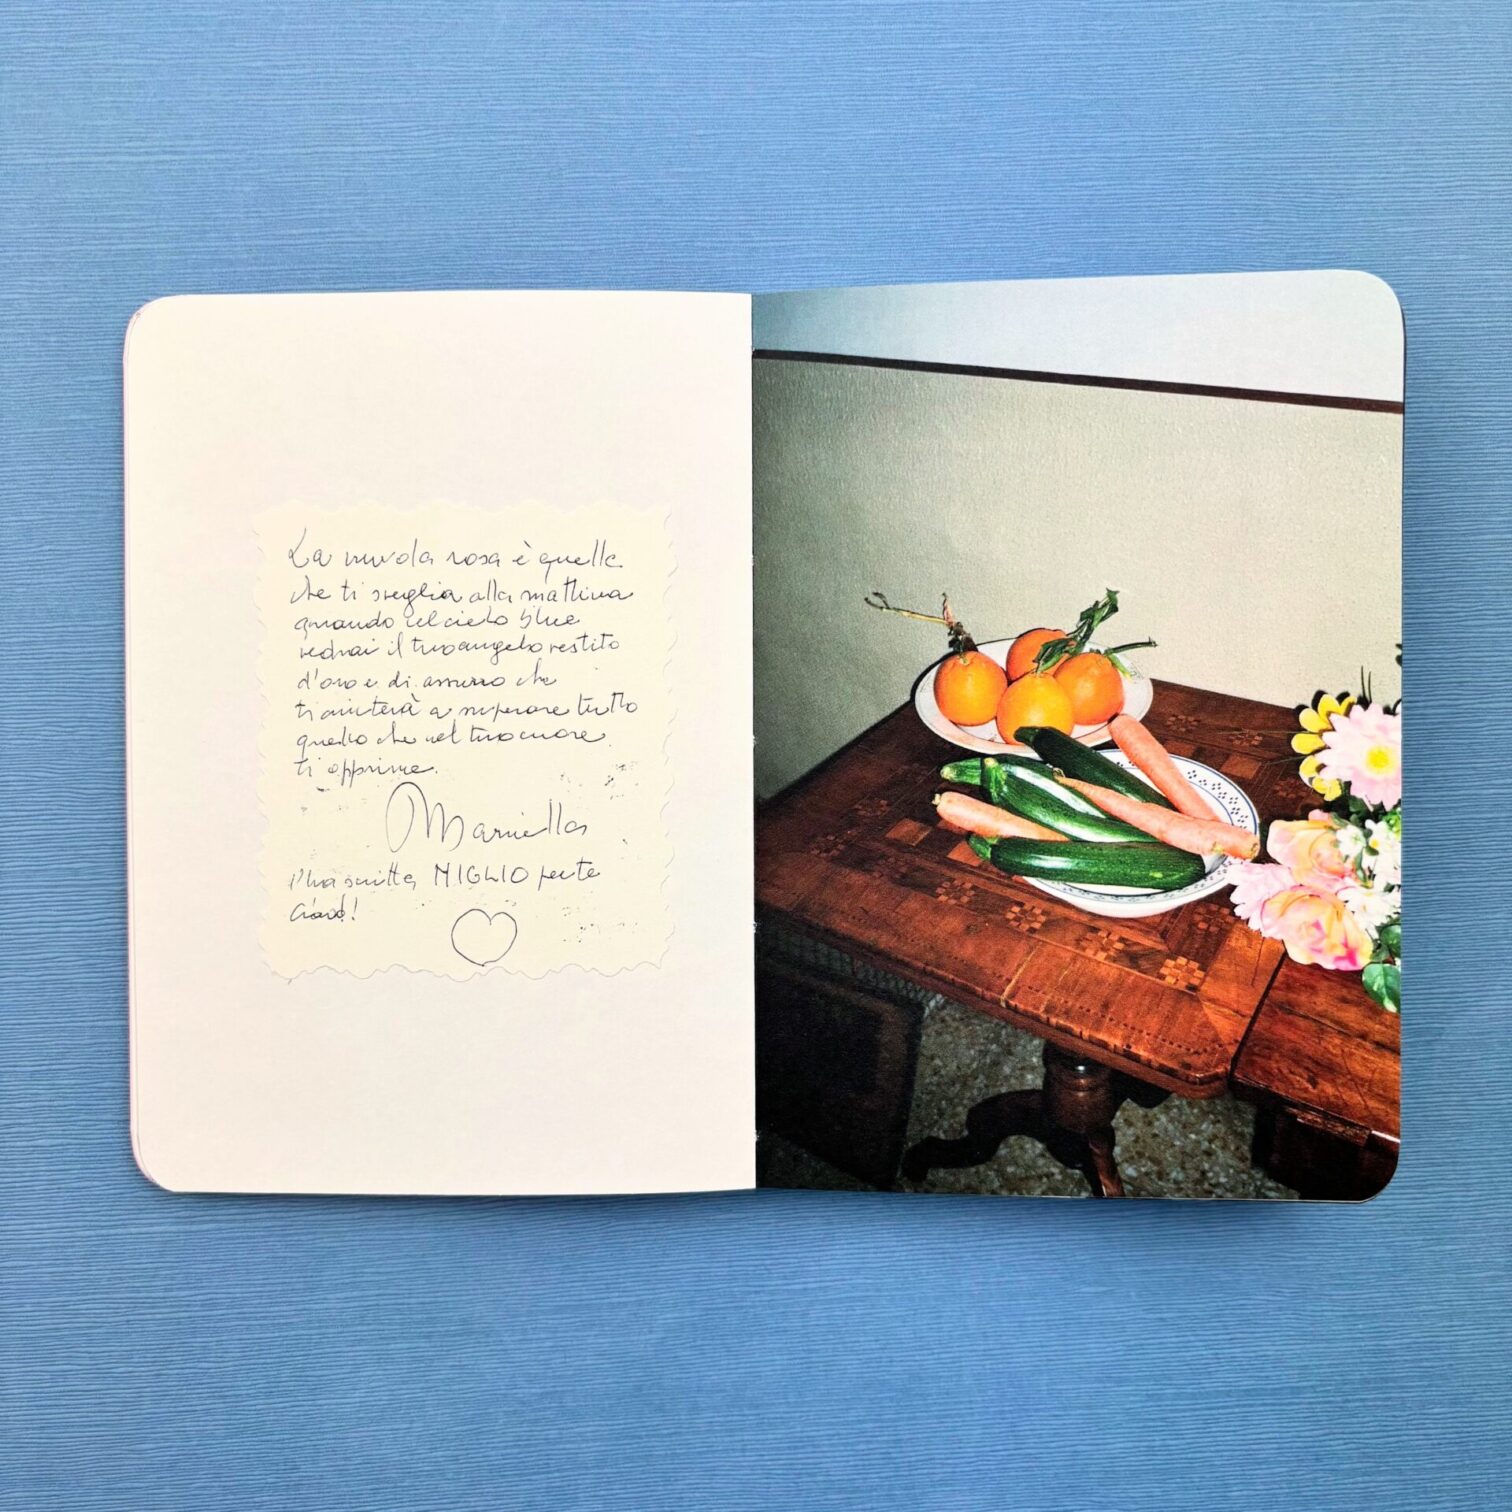 La nuvola rosa è quella
che ti sveglia alla mattina
quando nel cielo blue
vedrai il tuo angelo vestito
d'oro e di azzurro che
ti aiuterà a superare tutto
quello che nel tuo cuore
ti opprime.
Mariella
l'ha scritta MIGLIO per te
Ciao!